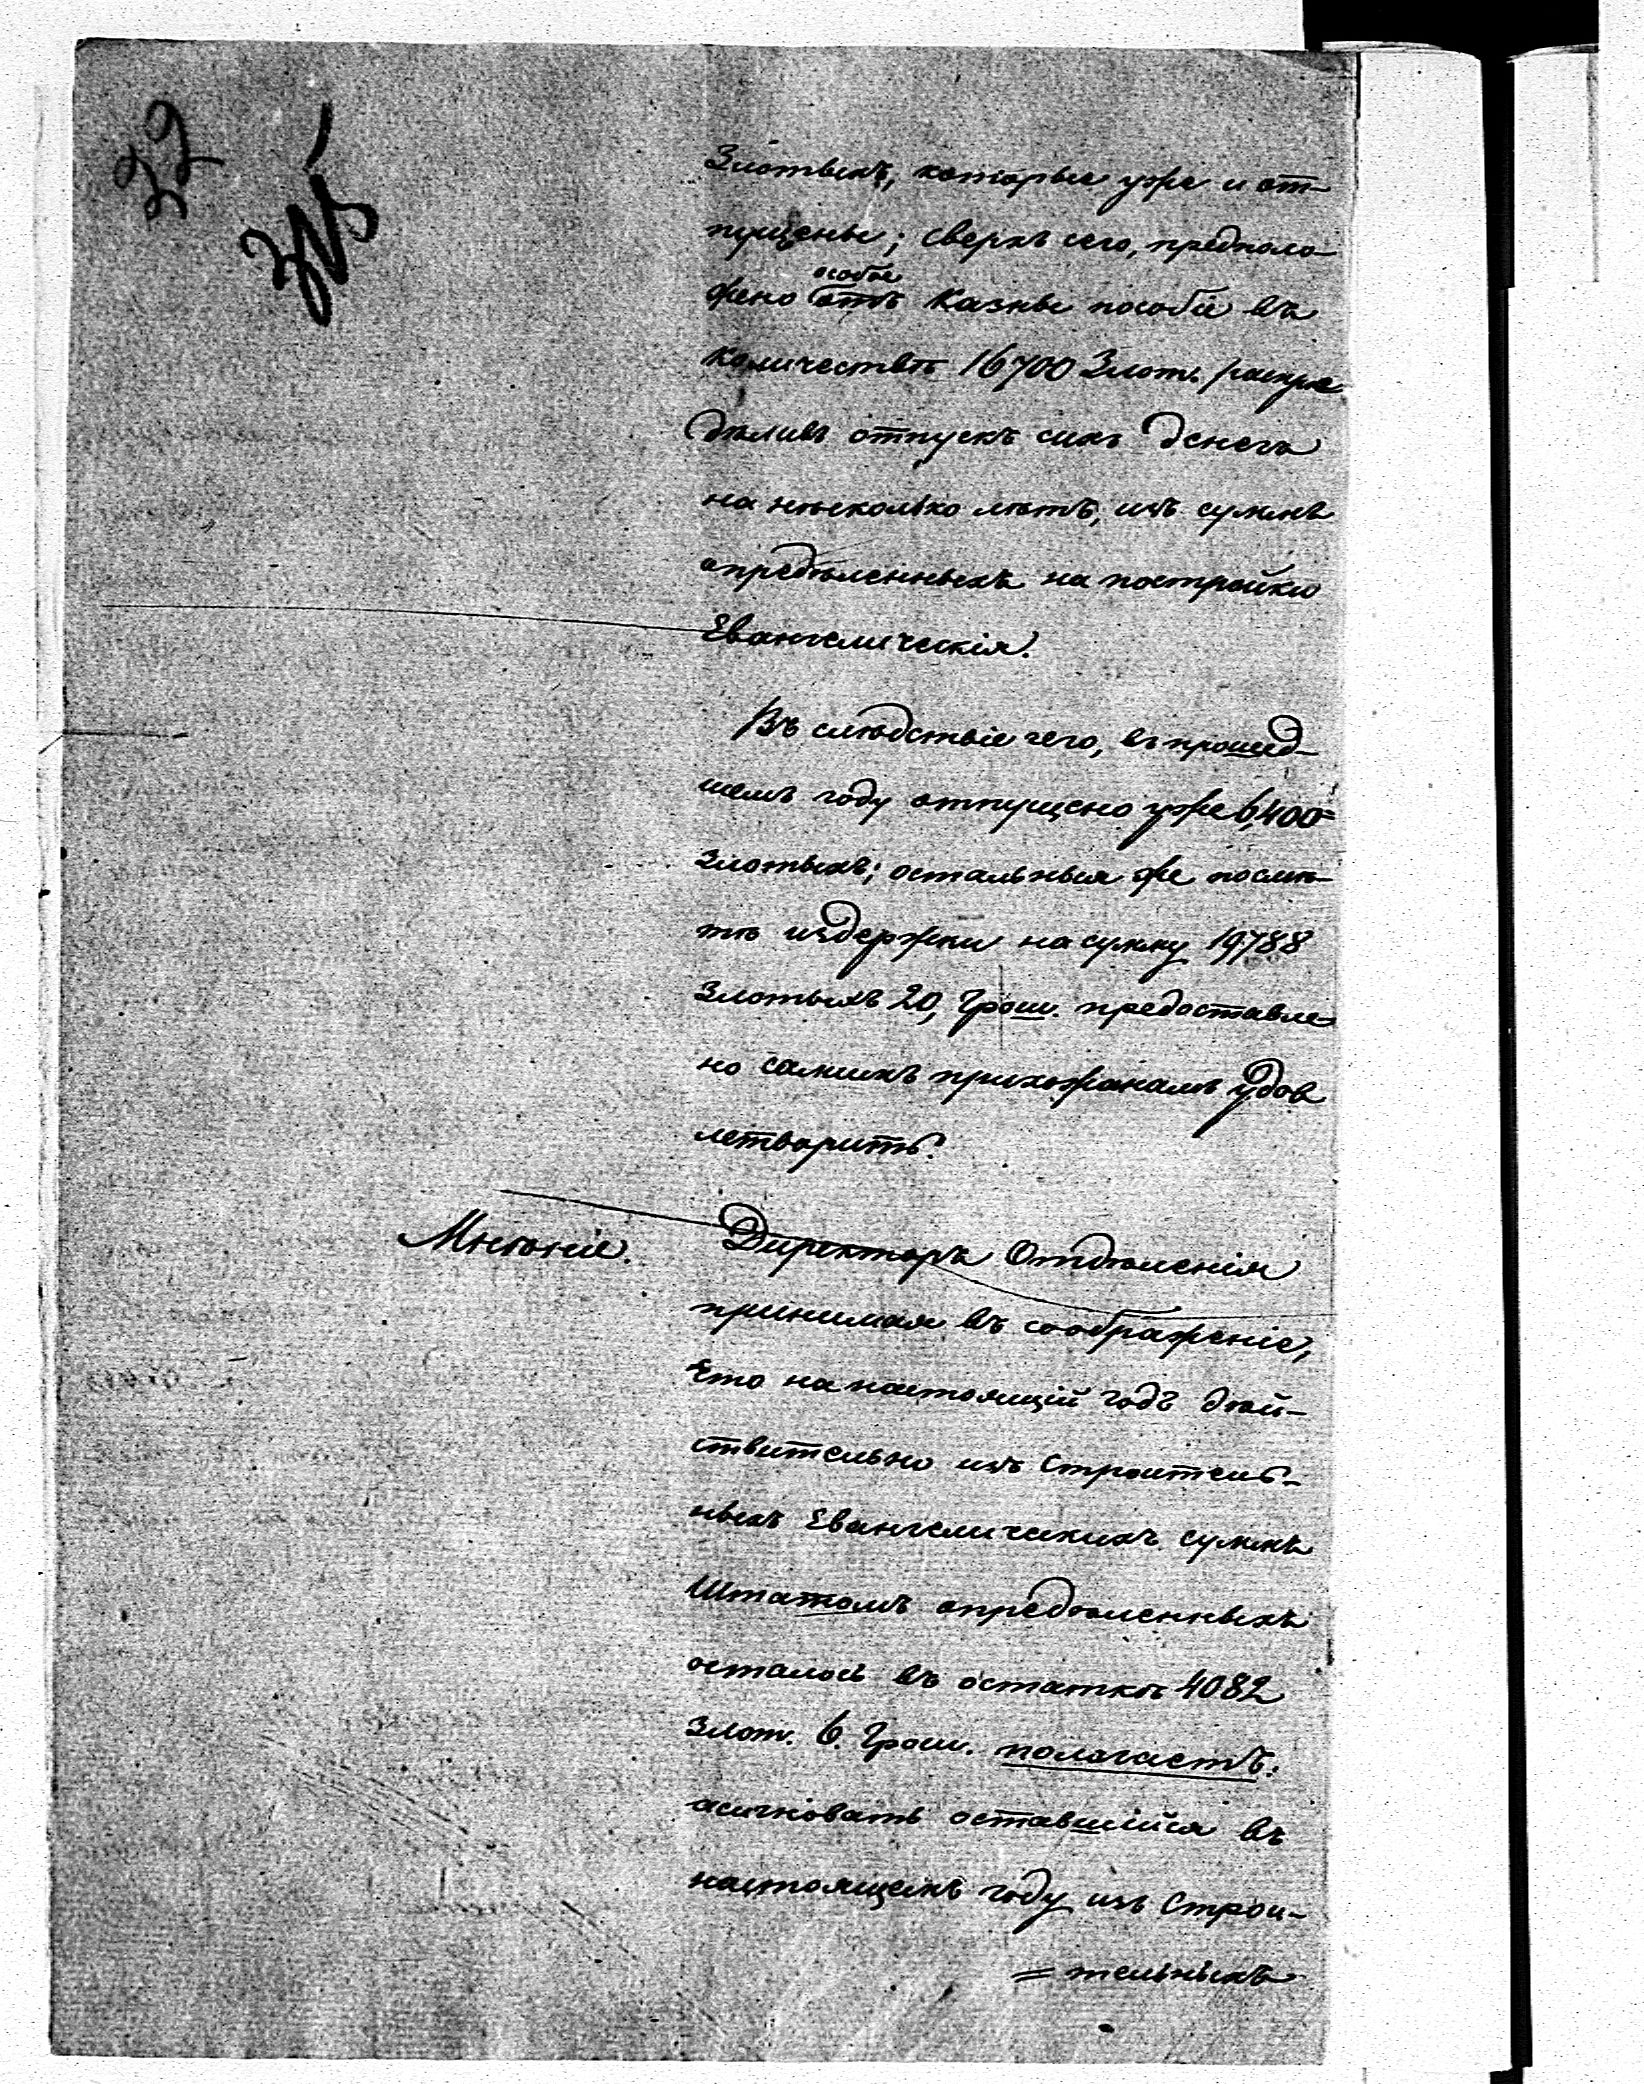 39
Злотыхъ, которые уже и от-
пущены; сверхъ сего, предполо-
особое
жено отъ Казны пособіе въ
количествѣ 16700 Злот. распре
дѣливъ отпускъ сихъ денегъ
на нѣсколько лѣтъ, изъ суммъ
опредѣленныхъ на постройки
Евангелическія.
Въ слѣдствіе чего, въ прошед-
шемъ году отпущено уже 6,400=
Злотыхъ; остальныя же послѣ-
тѣ издержки на сумму 19,788
Злотыхъ 20, Грош. предоставле
но самимъ прихожанамъ удов
летворить.
Мнѣніе. Директоръ Отдѣленія
принимая въ соображеніе,
Что на настоящій годъ дѣй-
ствительно изъ Строитель-
ныхъ Евангелическихъ суммъ
Штатомъ опредѣленныхъ
осталось въ остаткѣ 4082
Злот. 6. Грош. полагаетъ:
асигновать оставшійся въ
настоящемъ году изъ Строи-
= тельныхъ